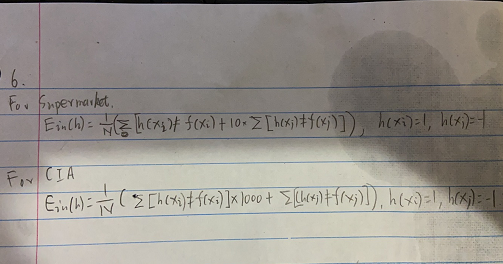 6.
For Supermarket.
Ein(h) = 1/N (Σ [h(xi) ≠ f(xi) + 10 × Σ [h(xj) ≠ f(xj)]), h(xi)=1, h(xj)=-1
For CIA
Ein(h) = 1/N ( Σ [h(xi) ≠ f(xi)] × 1000 + Σ [(h(xj) ≠ f(xj)]), h(xi)=1, h(xj)=-1